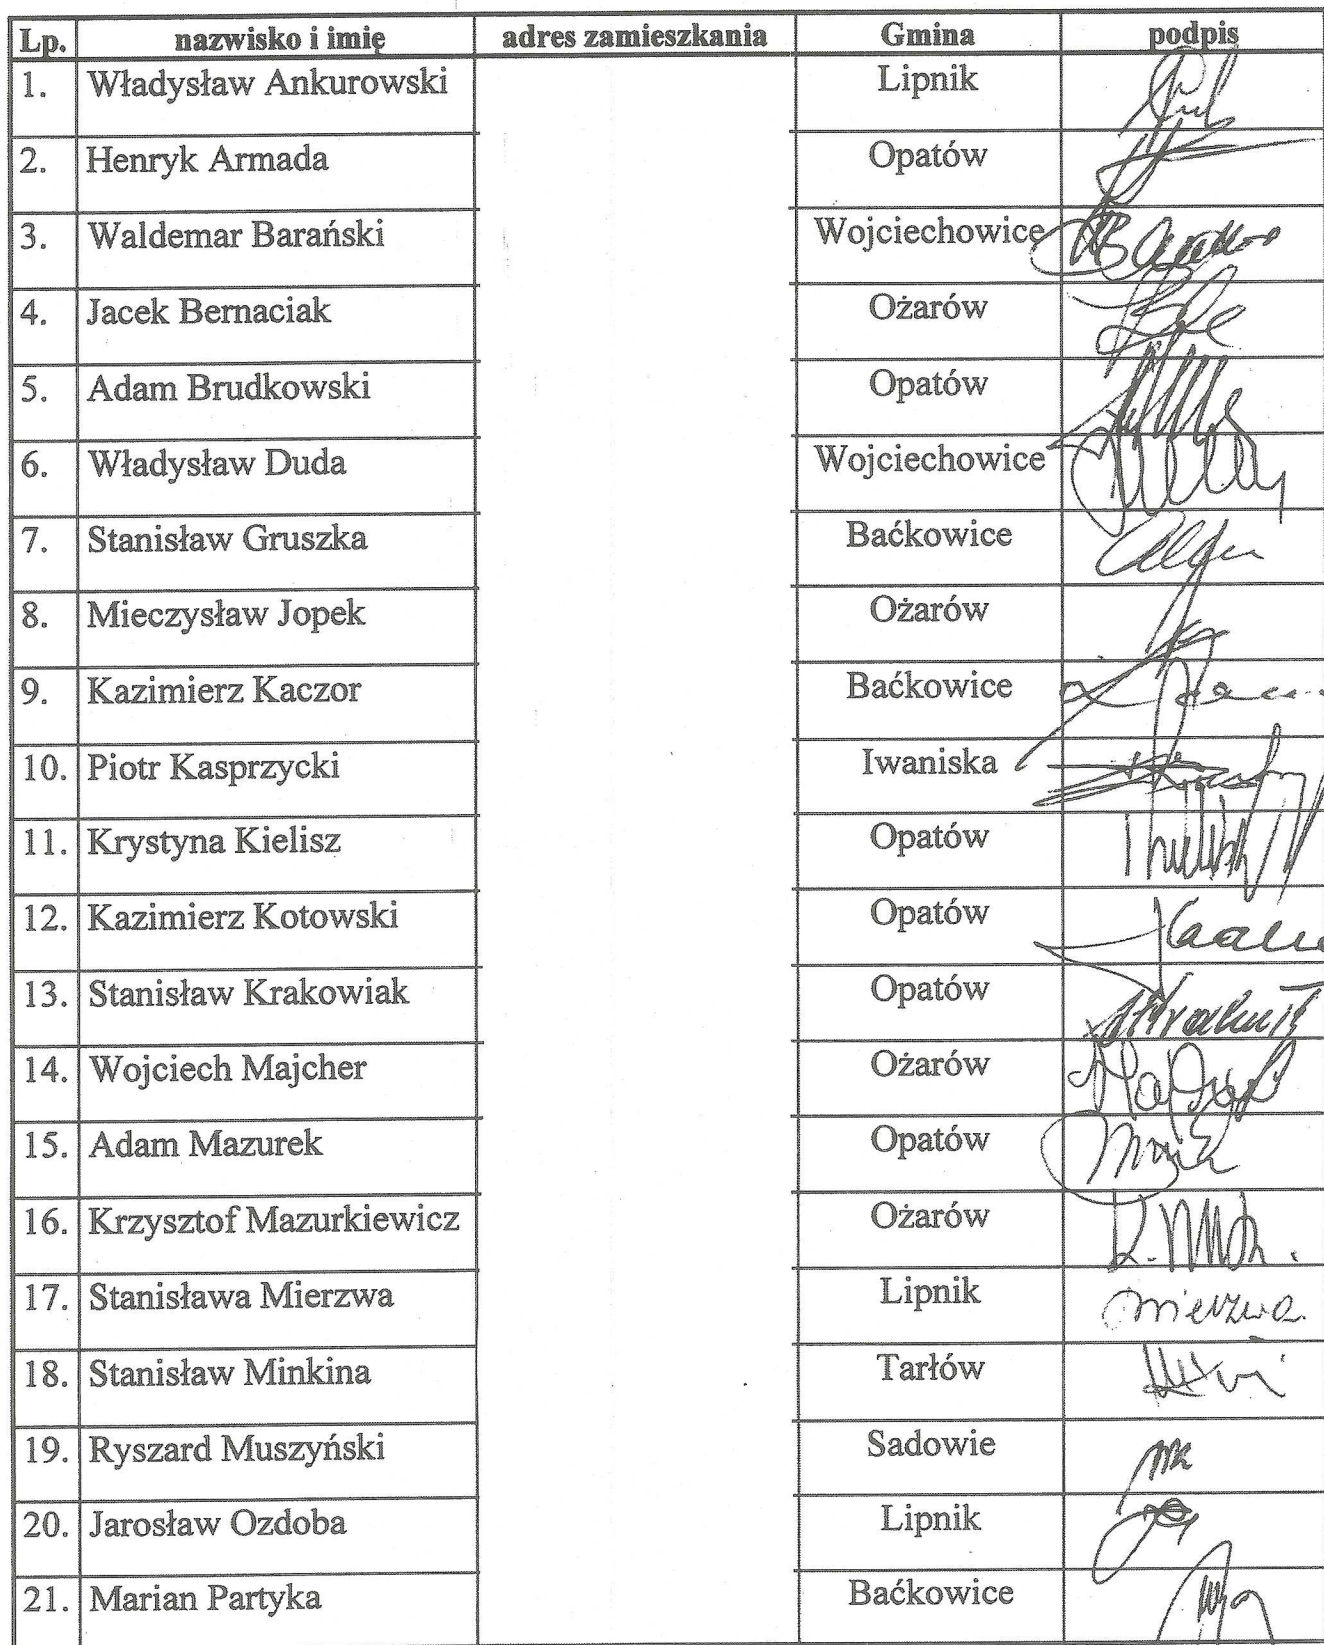 Lp. nazwisko i imię adres zamieszkania Gmina podpis
1. Władysław Ankurowski Lipnik
2. Henryk Armada Opatów
3. Waldemar Barański Wojciechowice
4. Jacek Bernaciak Ożarów
5. Adam Brudkowski Opatów
6. Władysław Duda Wojciechowice
7. Stanisław Gruszka Baćkowice
8. Mieczysław Jopek Ożarów
9. Kazimierz Kaczor Baćkowice
10. Piotr Kasprzycki Iwaniska
11. Krystyna Kielisz Opatów
12. Kazimierz Kotowski Opatów
13. Stanisław Krakowiak Opatów
14. Wojciech Majcher Ożarów
15. Adam Mazurek Opatów
16. Krzysztof Mazurkiewicz Ożarów
17. Stanisława Mierzwa Lipnik Mierzwa
18. Stanisław Minkina Tarłów
19. Ryszard Muszyński Sadowie
20. Jarosław Ozdoba Lipnik
21. Marian Partyka Baćkowice